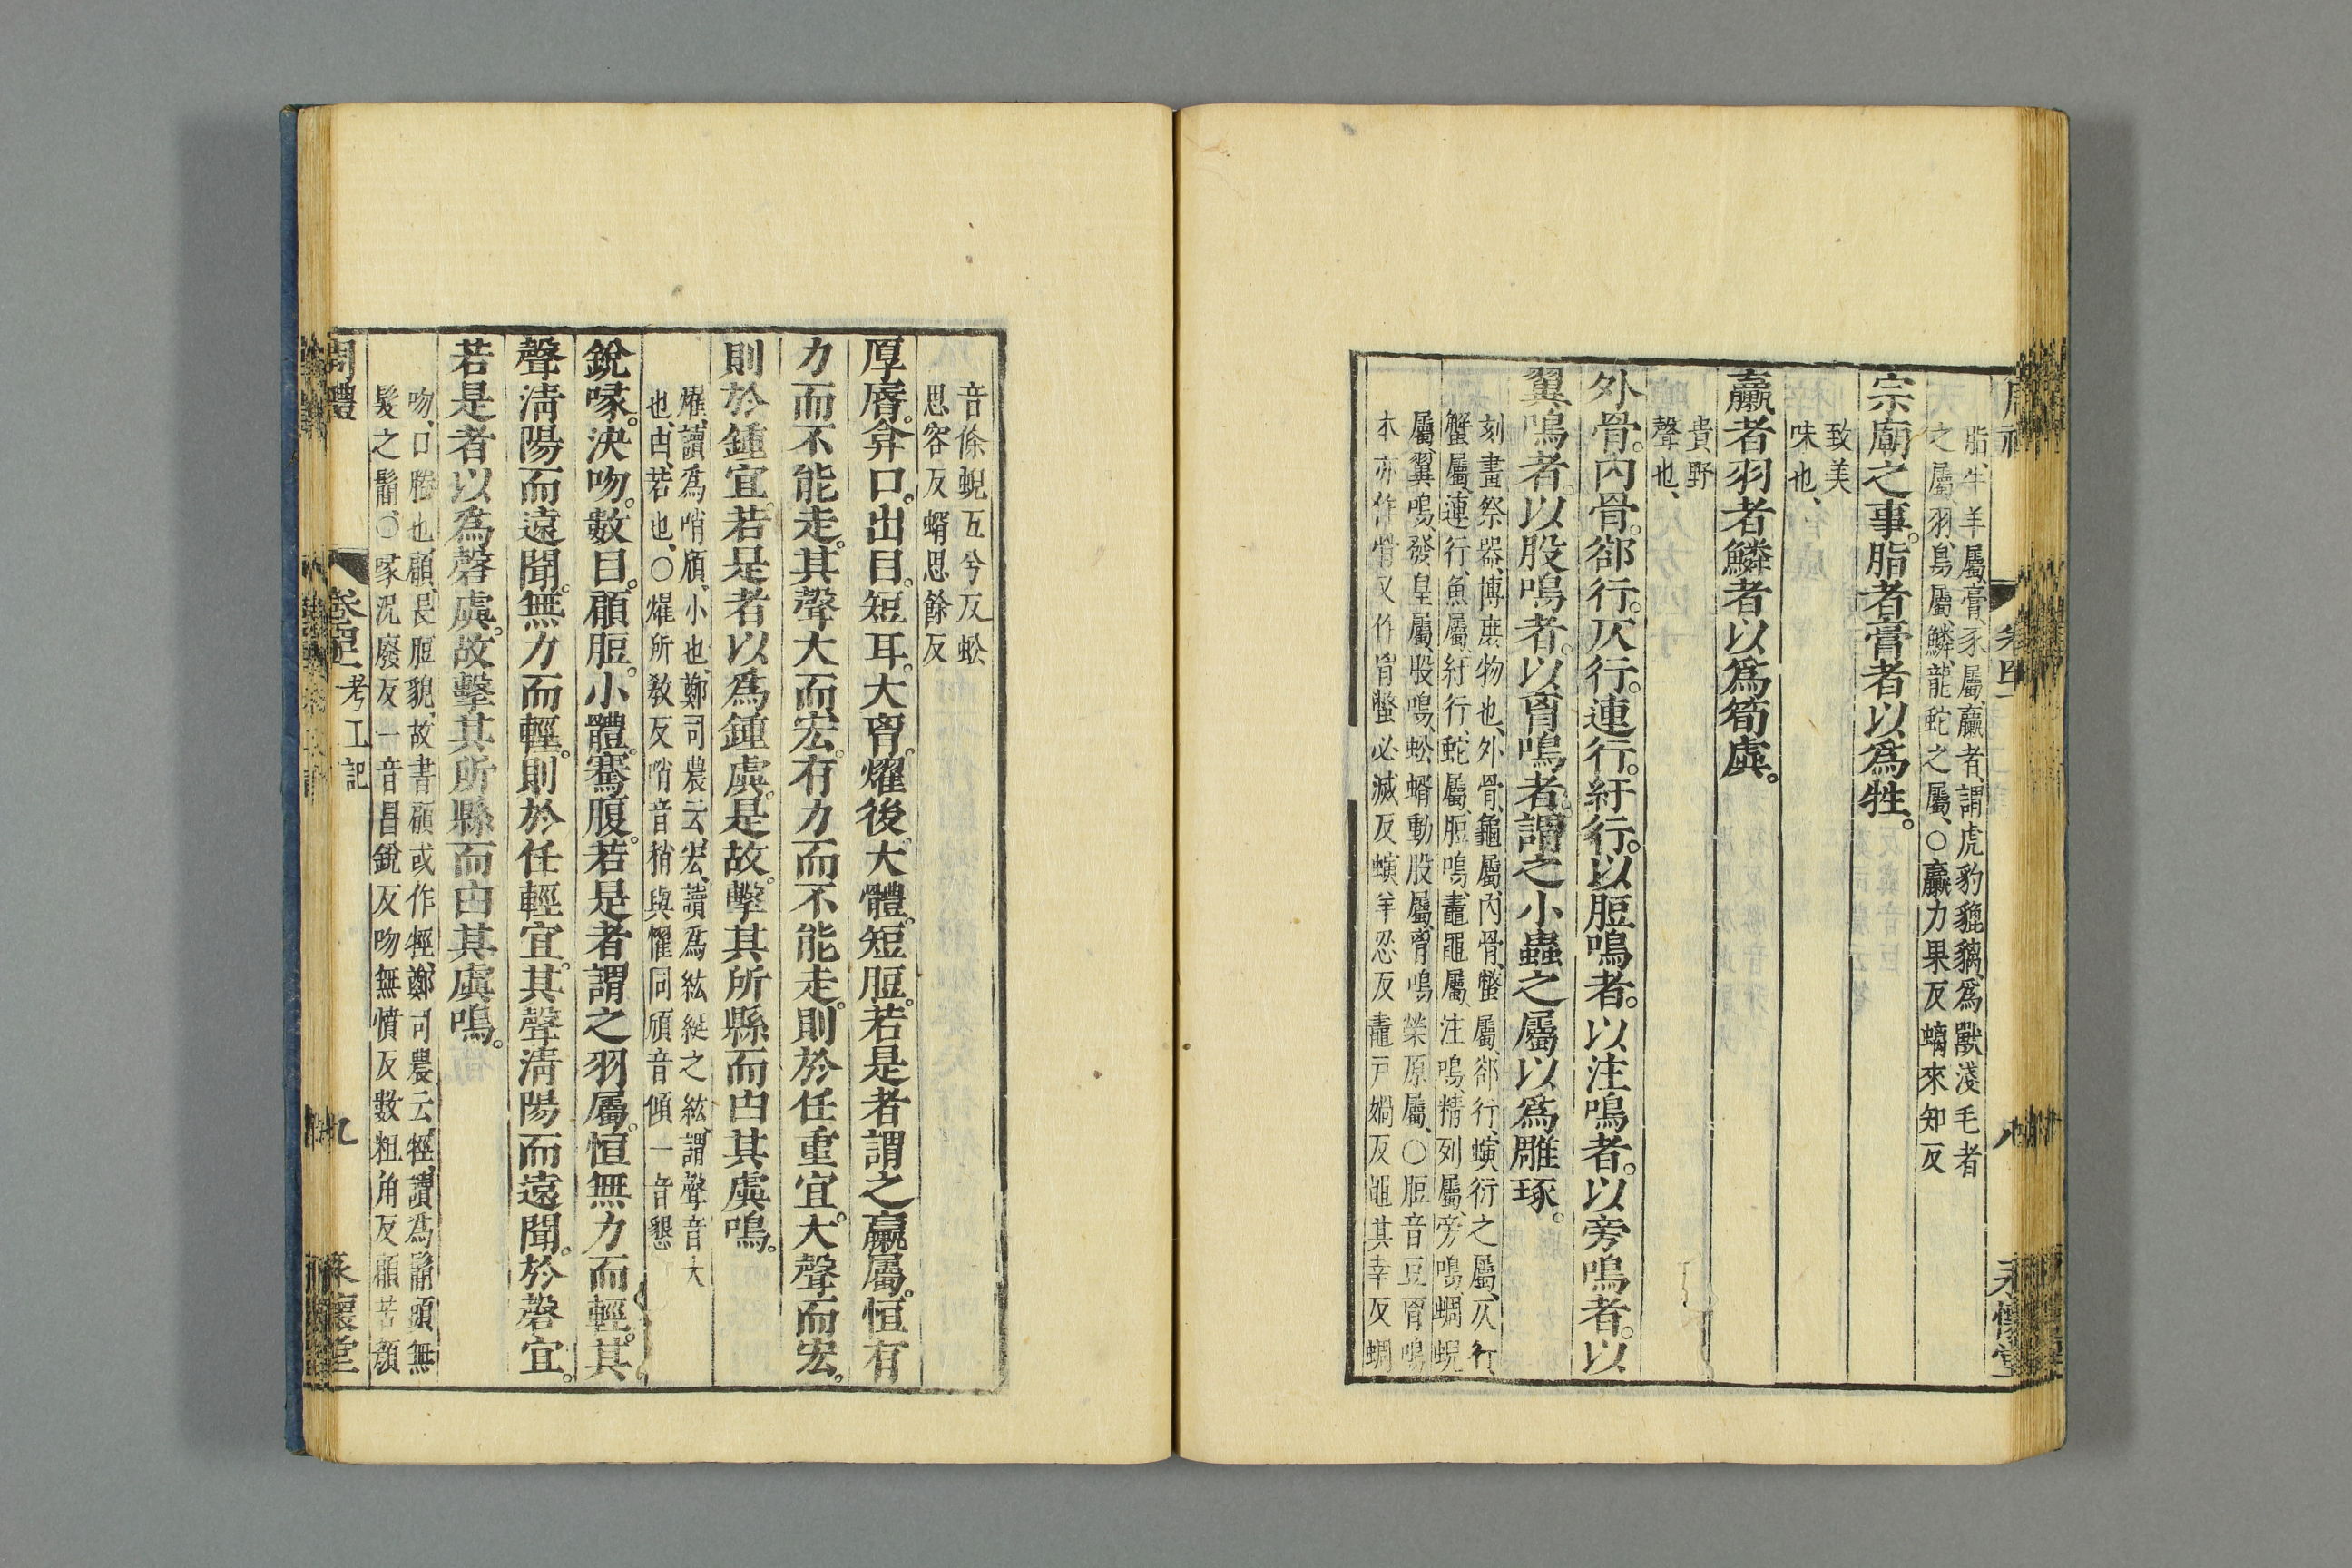 脂、牛羊屬、膏、豕屬、臝者、謂虎豹貔貐、為獸淺毛者
之屬、羽、鳥屬、鱗、龍蛇之屬、○臝力果反螭來知反
宗廟之事。脂者膏者以爲牲。
致美
味也、
臝者羽者鱗者以爲筍虡。
貴野
聲也、
外骨。內骨。郤行。仄行。連行。紆行。以脰鳴者。以注鳴者。以旁鳴者。以
翼鳴者。以股鳴者。以胷鳴者。謂之小蟲之屬以爲雕琢。
刻畫祭器、博庶物也、外骨、龜屬、內骨、鱉屬、郤行、螾衍之屬、仄行、
蟹屬、連行、魚屬、紆行、蛇屬、脰鳴、鼃黽屬、注鳴、精列屬、旁鳴、蜩蜺
屬、翼鳴、發皇屬、股鳴、蚣蝑動股屬、胷鳴、榮原屬、○脰音豆胷鳴
本亦作骨又作胃鱉必滅反螾羊忍反鼃戸媧反黽其幸反蜩
周禮
卷四
八
永懷堂
音條蜺五兮反蚣
思容反蝑思餘反
厚脣。弇口。出目。短耳。大胷。燿後。大體。短脰。若是者謂之臝屬。恒有
力而不能走。其聲大而宏。有力而不能走。則於任重宜。大聲而宏。
則於鍾宜。若是者以爲鍾虡。是故。擊其所縣而由其虡鳴。
燿、讀爲哨頎、小也、鄭司農云、宏、讀爲紘綖之紘、謂聲音大
也、由、若也、○燿所教反哨音稍與懼同頎音傾一音懇
銳喙。決吻。數目。顅脰。小體。騫腹。若是者謂之羽屬。恒無力而輕。其
聲清陽而遠聞。無力而輕。則於任輕宜。其聲清陽而遠聞。於磬宜。
若是者以爲磬虡。故擊其所縣而由其虡鳴。
吻、口䐇也顅、長脰貌、故書顅或作牼、鄭司農云、牼、讀爲鬜頭無
髮之鬜、○喙況廢反一音昌銳反吻無憤反數粗角反顅苦顏
周禮
卷四
考工記
九
永懷堂